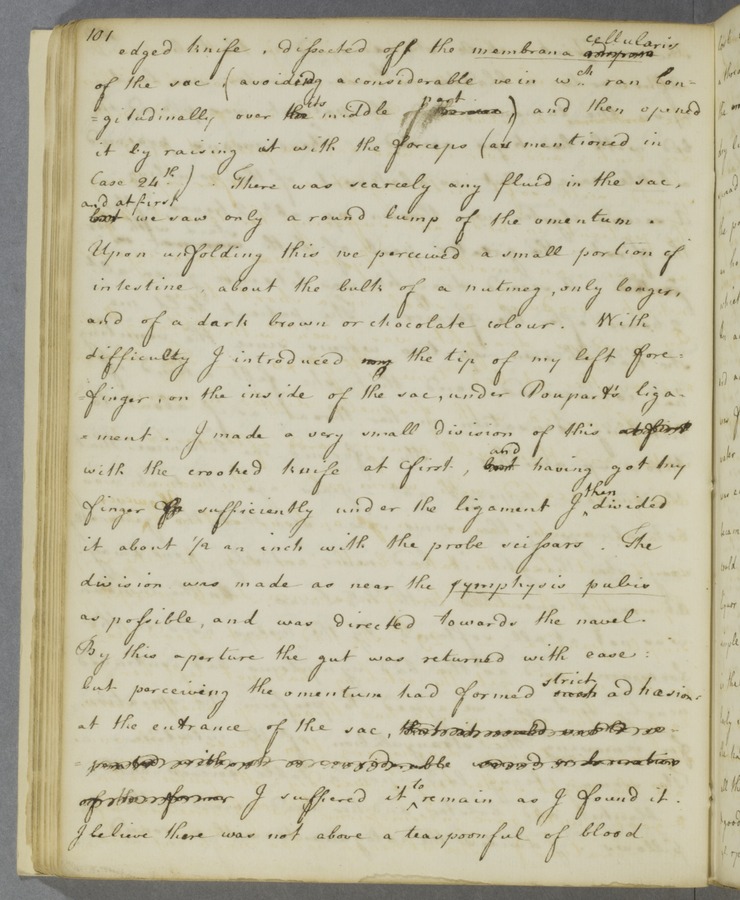 101
edged knife, dissected off the membrana cellularis
of the sac (avoiding a considerable vein wch. ran lon=
=gitudinally over its middle part) and then opened
it by raising it with the forceps (as mentioned in
Case 24th.). There was scarcely any fluid in the sac,
and at first
but we saw only a round lump of the omentum.
Upon unfolding this we perceived a small portion of
intestine, about the bulk of a nutmeg, only longer,
and of a dark brown or chocolate colour. With
difficulty I introduced the tip of my left fore=
finger, on the inside of the sac, under Poupart's liga=
=ment. I made a very small division of this at first
with the crooked knife at first, but and having got my
finger sufficiently under the ligament I then divided
it about 1/2 an inch with the probe scissars. The
division was made as near the symphysis pubis
as possible, and was directed towards the navel.
By this aperture the gut was returned with ease:
but perceiving the omentum had formed such strict adhæsions
at the entrance of the sac,
I suffered it to remain as I found it.
I believe there was not above a teaspoonful of blood